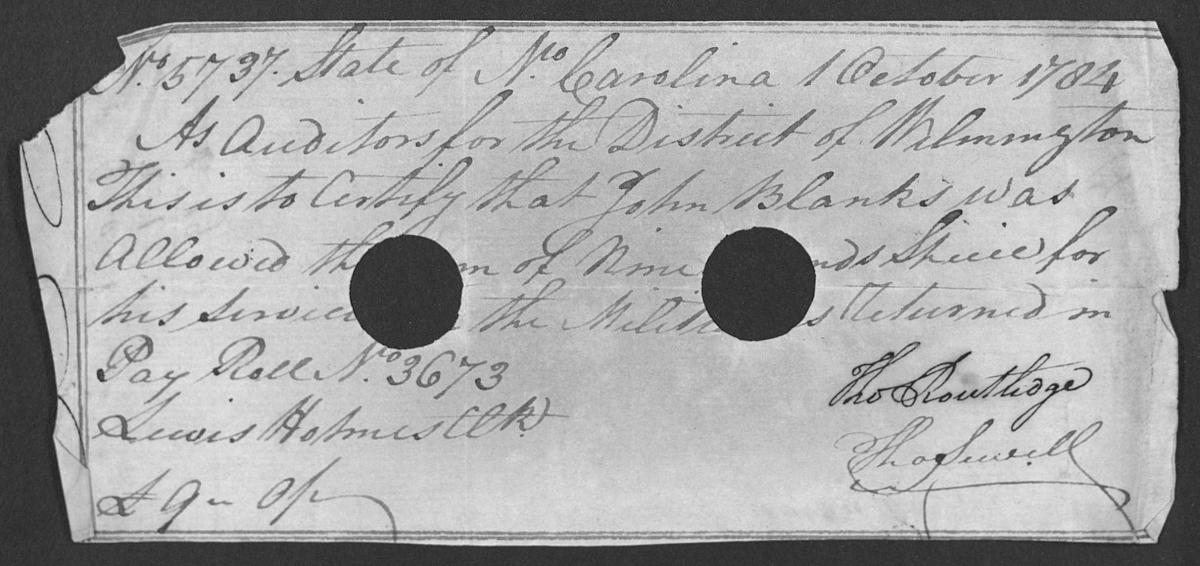 No. 5737. State of No. Carolina 1 October 1784
As Auditors for the District of Wilmington
This is to Certify that John Blanks was
Allowed th m of Nine nds Specie for
his Servic the Militi s Returned in
Pay Roll No. 3673
Lewis Holmes Clk
Tho Routledge
Tho Sewell
£ 9